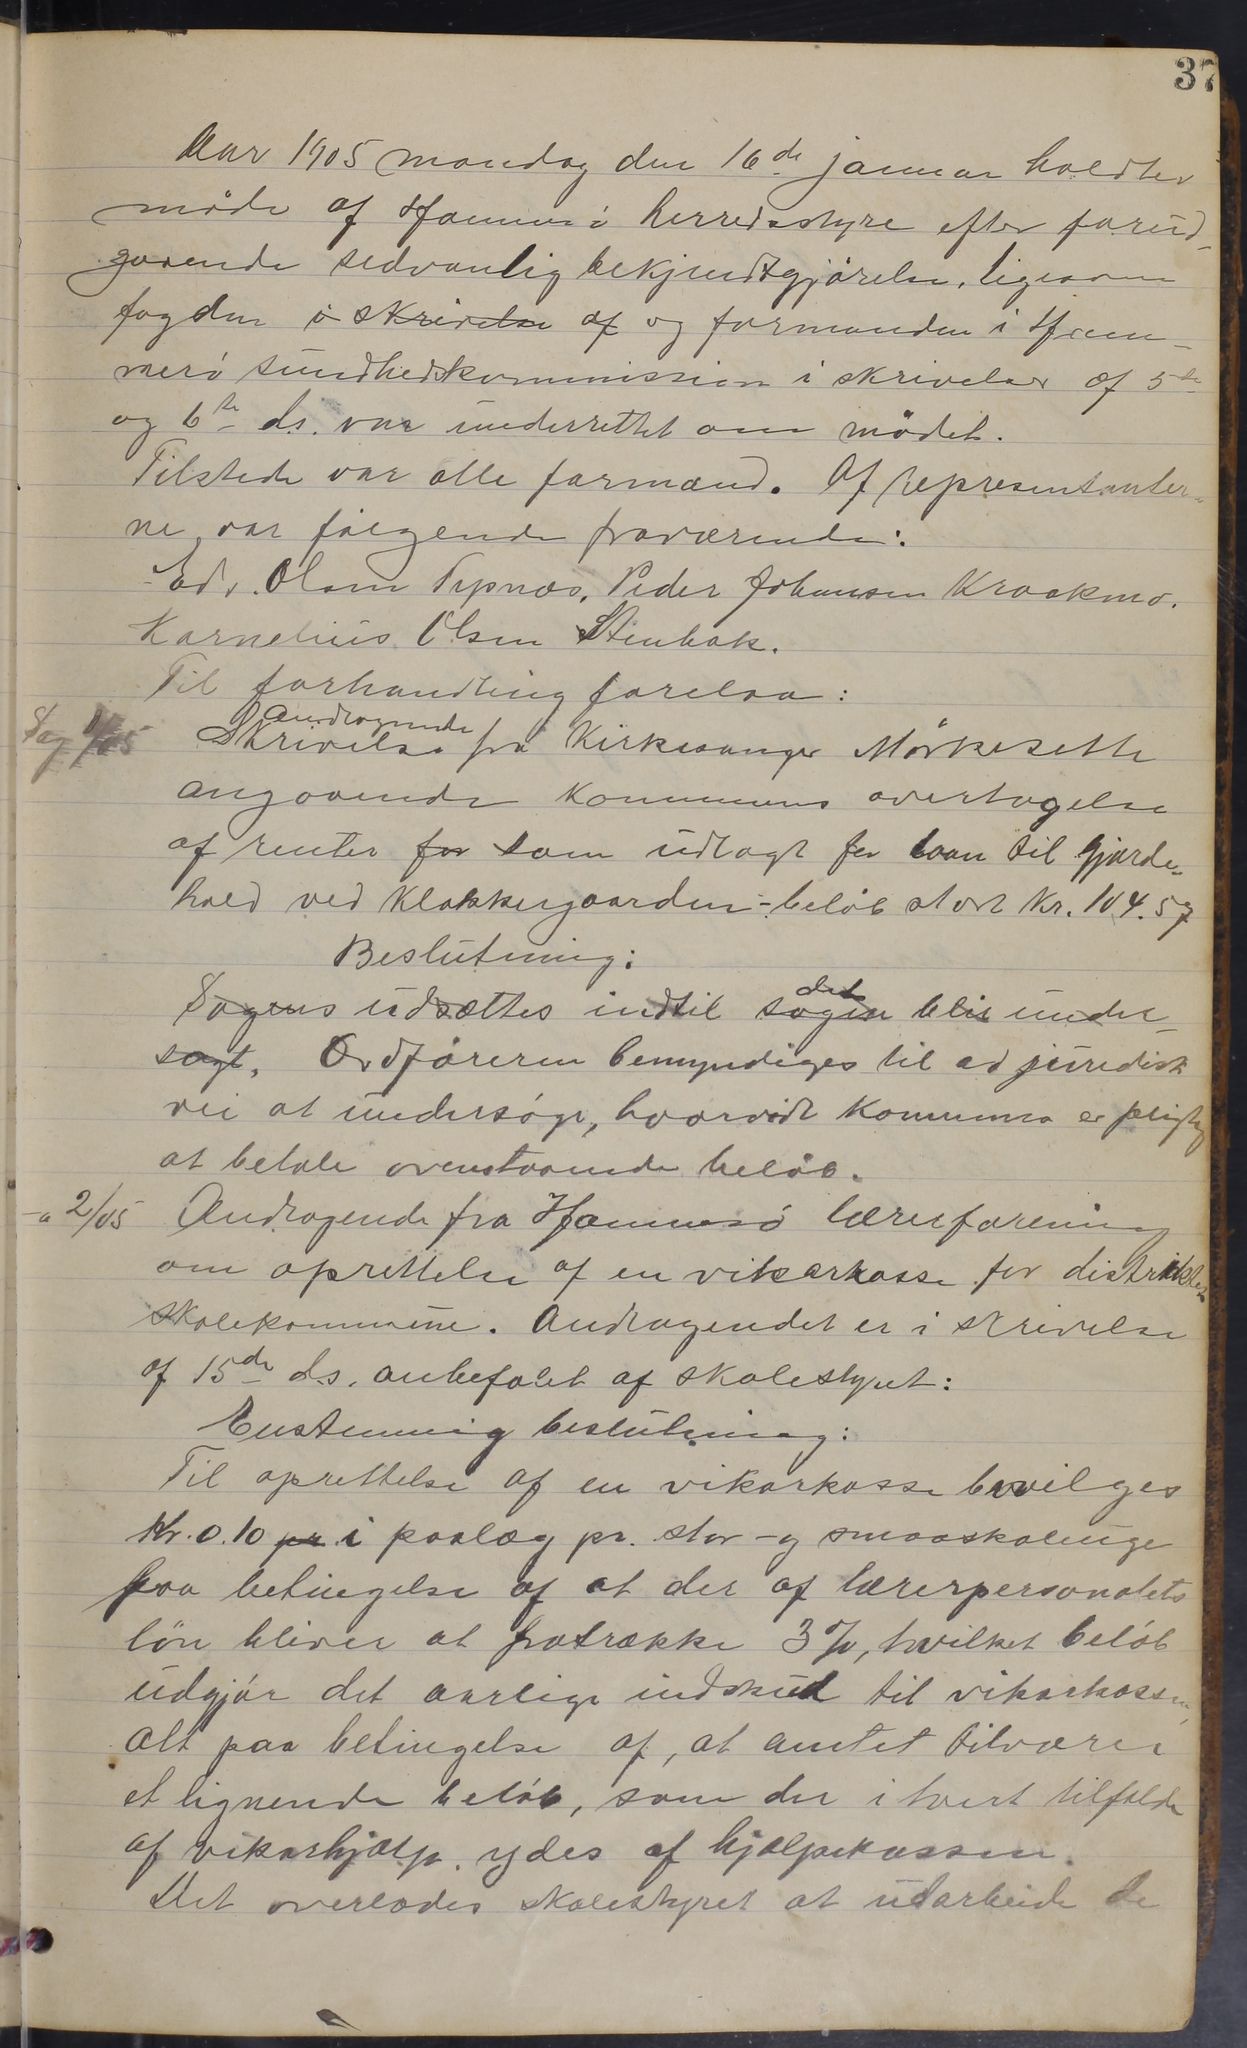 37
Aar 1905 mandag den 16de januar holdtes
møde af Hammerø herredsstyre efter forud-
gaaende sedvanlig bekjendtgjørelse, ligesom
fogden i skrivelse af og formanden i Ham-
merø sundhedskommission i skrivelser af 5te
og 6te ds. var underrettet om mødet.
Tilstede var alle formænd. Af repræsentanter-
ne var følgende fraværende:
Edv. Olsen Tepnæs, Peder Johansen Kraakmo.
Kornelius Olsen Stenbak.
Til forhandling forelaa:
Sag 1/05 Skrivelse Andragende fra Kirkesanger Mørkesett
angaaende kommunens overtagelse
af renter for som udlagt for laan til gjærde-
hold ved klokkergaarden – beløb stort kr. 104.57
Beslutning:
Sagens udsættes indtil sagen det blir under-
søgt. Ordføreren bemyndiges til ad juredisk
vei at undersøge, hvorvidt kommunen er pligtig
at betale ovenstaaende beløb.
-"- 2/05 Andragende fra Hammerø lærerforening
om oprettelse af en vikarkasse for distriktets
skolekommune. Andragendet er i skrivelse
af 15de ds. anbefalet af skolestyret:
Enstemmig beslutning:
Til oprettelse af en vikarkasse bevilges
Kr. 0.10 pr i paalæg pr. stor- og smaaskoleuge
paa betingelse af at der af lærerpersonalets
løn bliver at fratrække 3 %, hvilket beløb
udgjør det aarlige indskud til vikarkassen,
alt paa betingelse af, at amtet tilskyter
et lignende beløb, som der i hvert tilfælde
af vikarhjælp ydes af hjælpekassen.
Det overlades skolestyret at udarbeide de